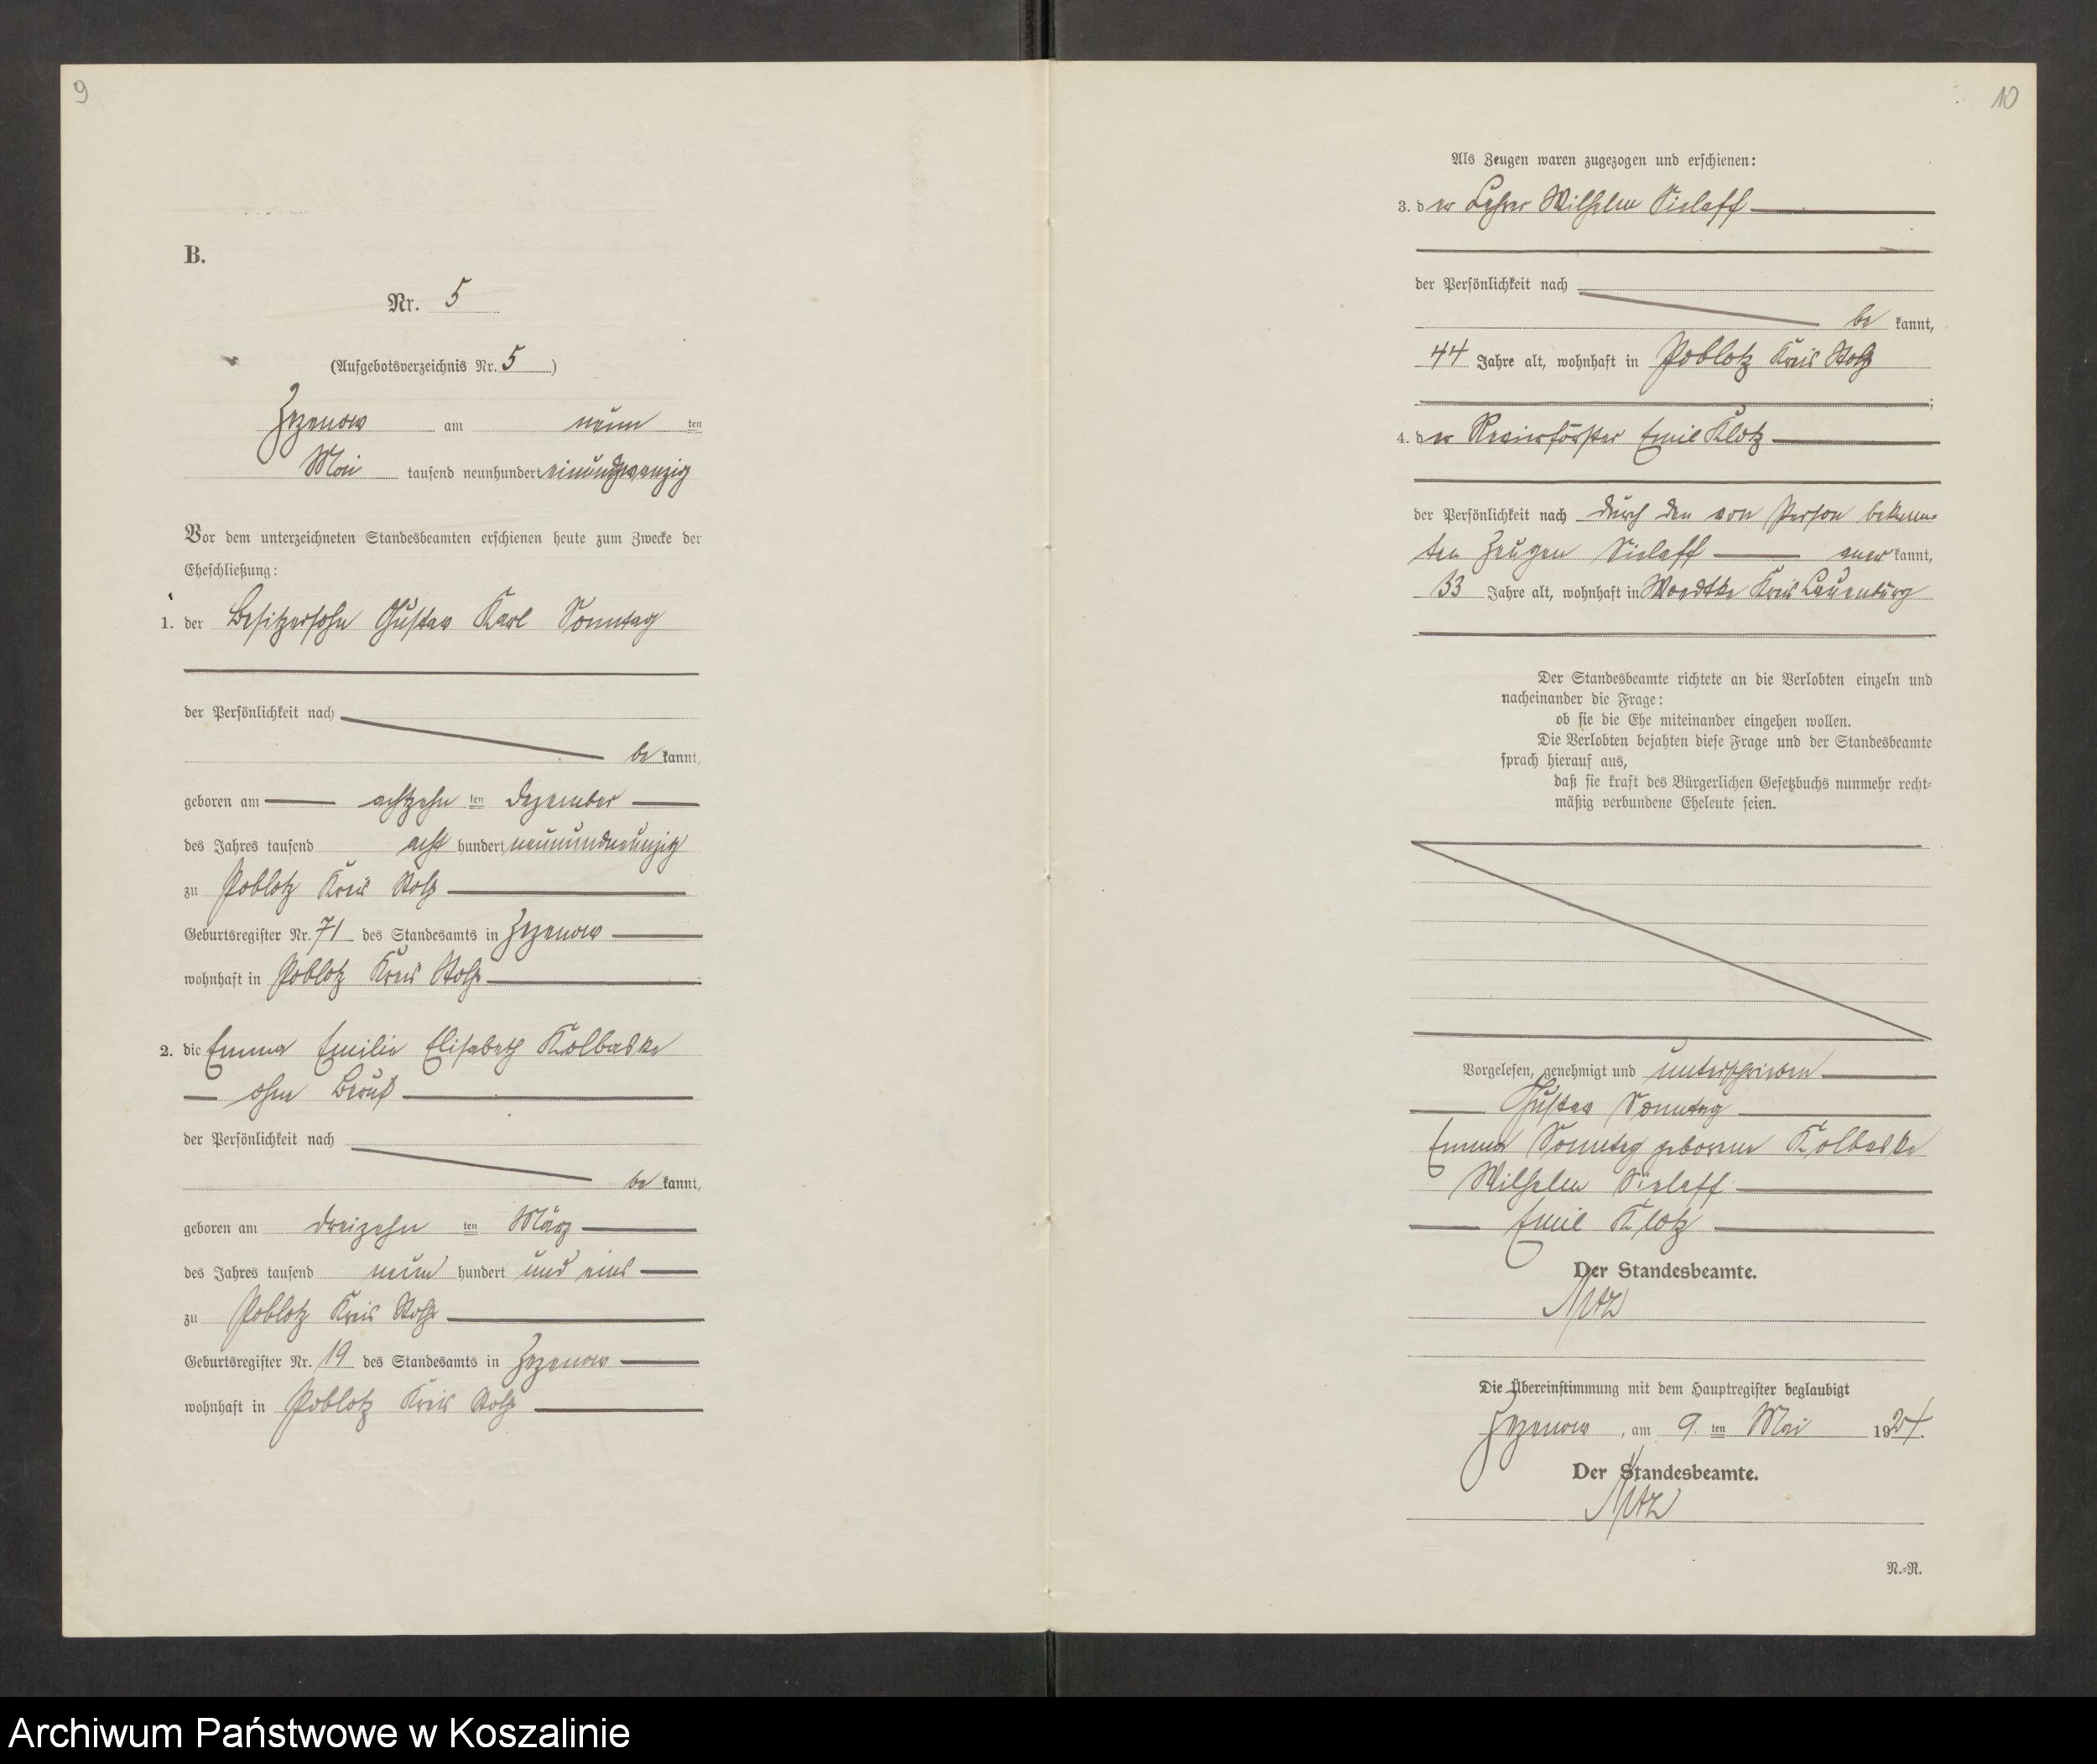 9
B.
Nr. 5
(Aufgebotsverzeichnis Nr. 5)
Zezenow am neun ten
Mai tausend neunhundert einundzwanzig
Vor dem unterzeichneten Standesbeamten erschienen heute zum Zwecke der
Eheschließung:
1. der Besitzersohn Gustav Karl Sonntag
der Persönlichkeit nach
be kannt,
geboren am achtzehn ten Dezember
des Jahres tausend acht hundert neunundneunzig
zu Poblotz Kreis Stolp
Geburtsregister Nr. 71 des Standesamts in Zezenow
wohnhaft in Poblotz Kreis Stolp
2. die Emma Emilie Elisabeth Kolbaske
ohne Beruf
der Persönlichkeit nach
be kannt,
geboren am dreizehn ten März
des Jahres tausend neun hundert und eins
zu Poblotz Kreis Stolp
Geburtsregister Nr. 19 des Standesamts in Zezenow
wohnhaft in Poblotz Kreis Stolp
10
Als Zeugen waren zugezogen und erschienen:
3. der Lehrer Wilhelm Sielaff
der Persönlichkeit nach
be kannt,
44 Jahre alt, wohnhaft in Poblotz Kreis Stolp
;
4. der Revierförster Emil Klotz
der Persönlichkeit nach durch den von Person bekann-
ten Zeugen Sielaff aner kannt,
33 Jahre alt, wohnhaft in Woedtke Kreis Lauenburg
Der Standesbeamte richtete an die Verlobten einzeln und
nacheinander die Frage:
ob sie die Ehe miteinander eingehen wollen.
Die Verlobten bejahten diese Frage und der Standesbeamte
sprach hierauf aus,
daß sie kraft des Bürgerlichen Gesetzbuchs nunmehr recht-
mäßig verbundene Eheleute seien.
Vorgelesen, genehmigt und unterschrieben
Gustav Sonntag
Emma Sonntag geborene Kolbaske
Wilhelm Sielaff
Emil Klotz
Der Standesbeamte.
Die Übereinstimmung mit dem Hauptregister beglaubigt
Zezenow, am 9. ten Mai 1921.
Der Standesbeamte.
N.-R.
Archiwum Państwowe w Koszalinie